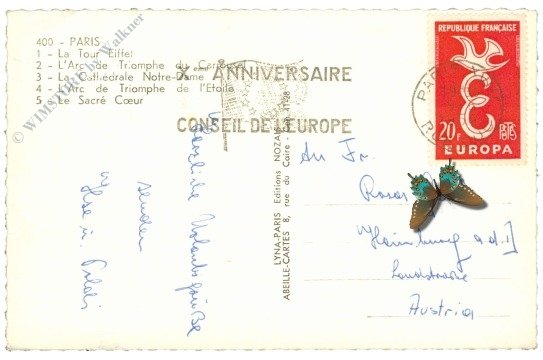 © WIMSWIRE by Walkner
400 - PARIS
1 - La Tour Eiffel
2 - L'Arc de Triomphe du Carrousel
3 - La Cathédrale Notre-Dame
4 - L'Arc de Triomphe de l'Etoile
5 - Le Sacré Cœur
Xe ANNIVERSAIRE
CONSEIL DE L'EUROPE
LYNA-PARIS Editions NOZAIS
ABEILLE-CARTES 8, rue du Caire
Herzliche Urlaubsgrüße
senden
Ilse u.
REPUBLIQUE FRANÇAISE
20F POSTES
EUROPA
PARIS
An Fr.
Rosa
Hainburg a.d.
Landstrasse
Austria